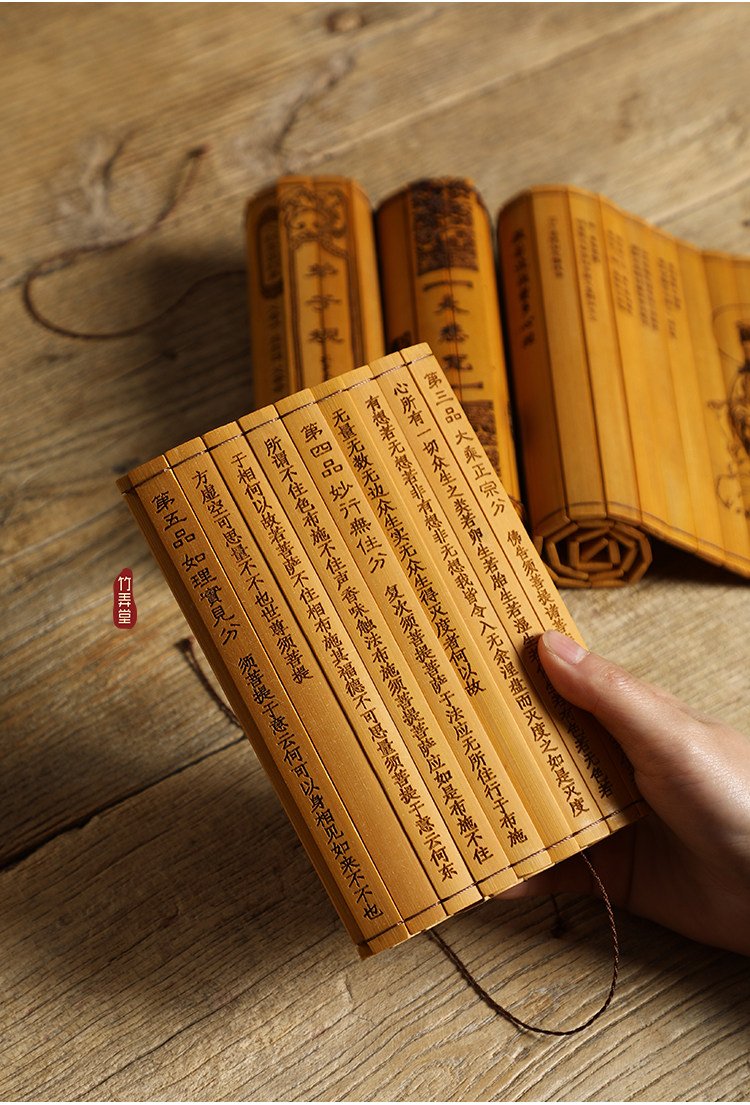 弟子规
大悲咒
第三品 大乘正宗分 佛告须菩提诸菩
心所有一切众生之类若卵生若胎生若湿生 色若无色若
有想若无想若非有想非无想我皆令入无余涅槃而灭度之如是灭度
无量无数无边众生实无众生得灭度者何以故
第四品 妙行無住分 复次须菩提菩萨于法应无所住行于布施
所谓不住色布施不住声香味触法布施须菩提菩萨应如是布施不住
于相何以故若菩萨不住相布施其福德不可思量须菩提于意云何东
方虚空可思量不不也世尊须菩提
第五品 如理實見分 须菩提于意云何可以身相见如来不不也
竹弄堂